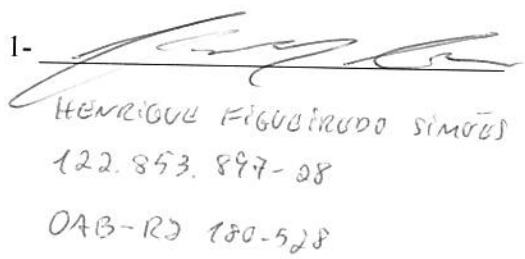 1-
HENRIQUE FIGUEIREDO SIMÕES
122.853.897-28
OAB-RJ 180.528